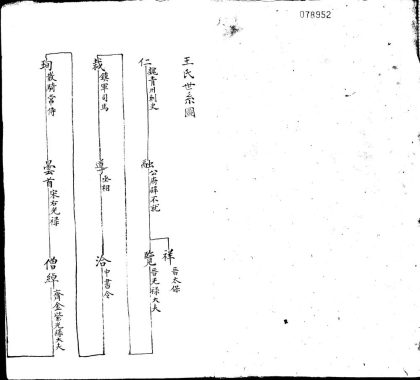 078952
王氏世系圖
仁 魏青州刺史
融 公府辟不就
祥 晉太保
覽 晉光祿大夫
裁 鎮軍司馬
導 丞相
洽 中書令
珣 散騎常侍
曇首 宋右光祿
僧綽 齊金紫光祿大夫